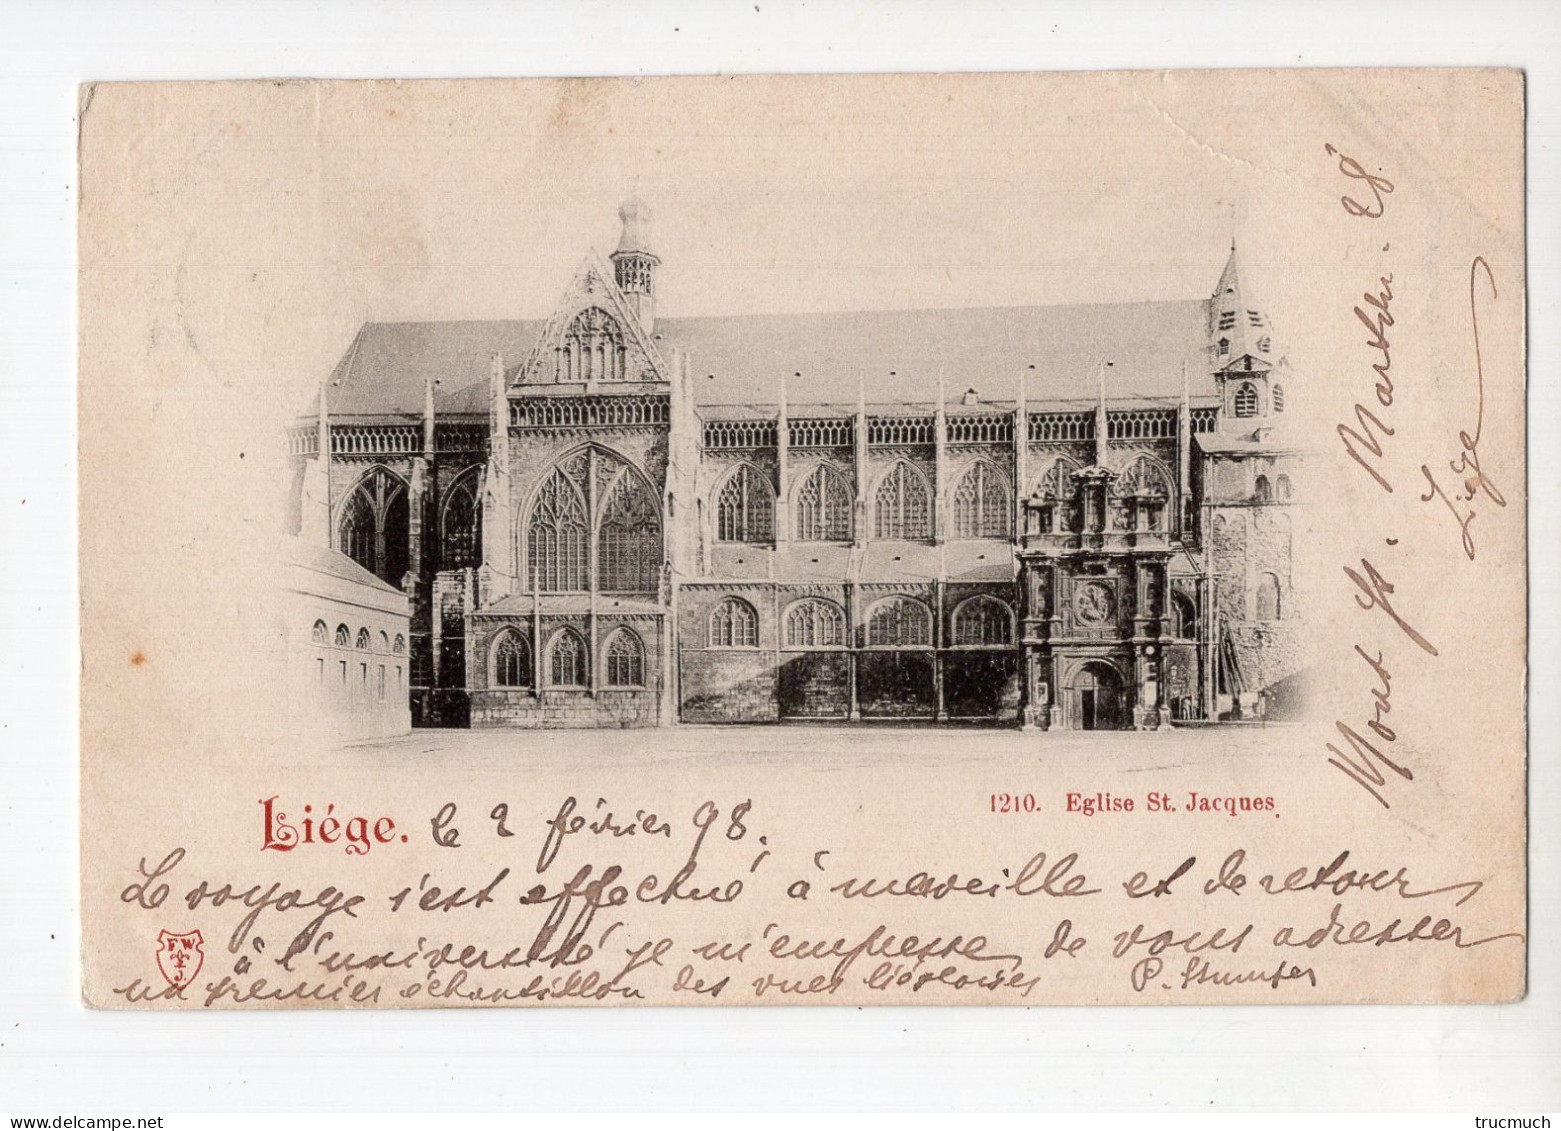 1210. Eglise St. Jacques.
Liége. le 2 février 98.
Le voyage s'est effectué à merveille et de retour
à l'université je m'empresse de vous adresser
un premier échantillon des vues liégeoises P.
Mont St. Martin. 28
Liège
F W
J.
trucmuch